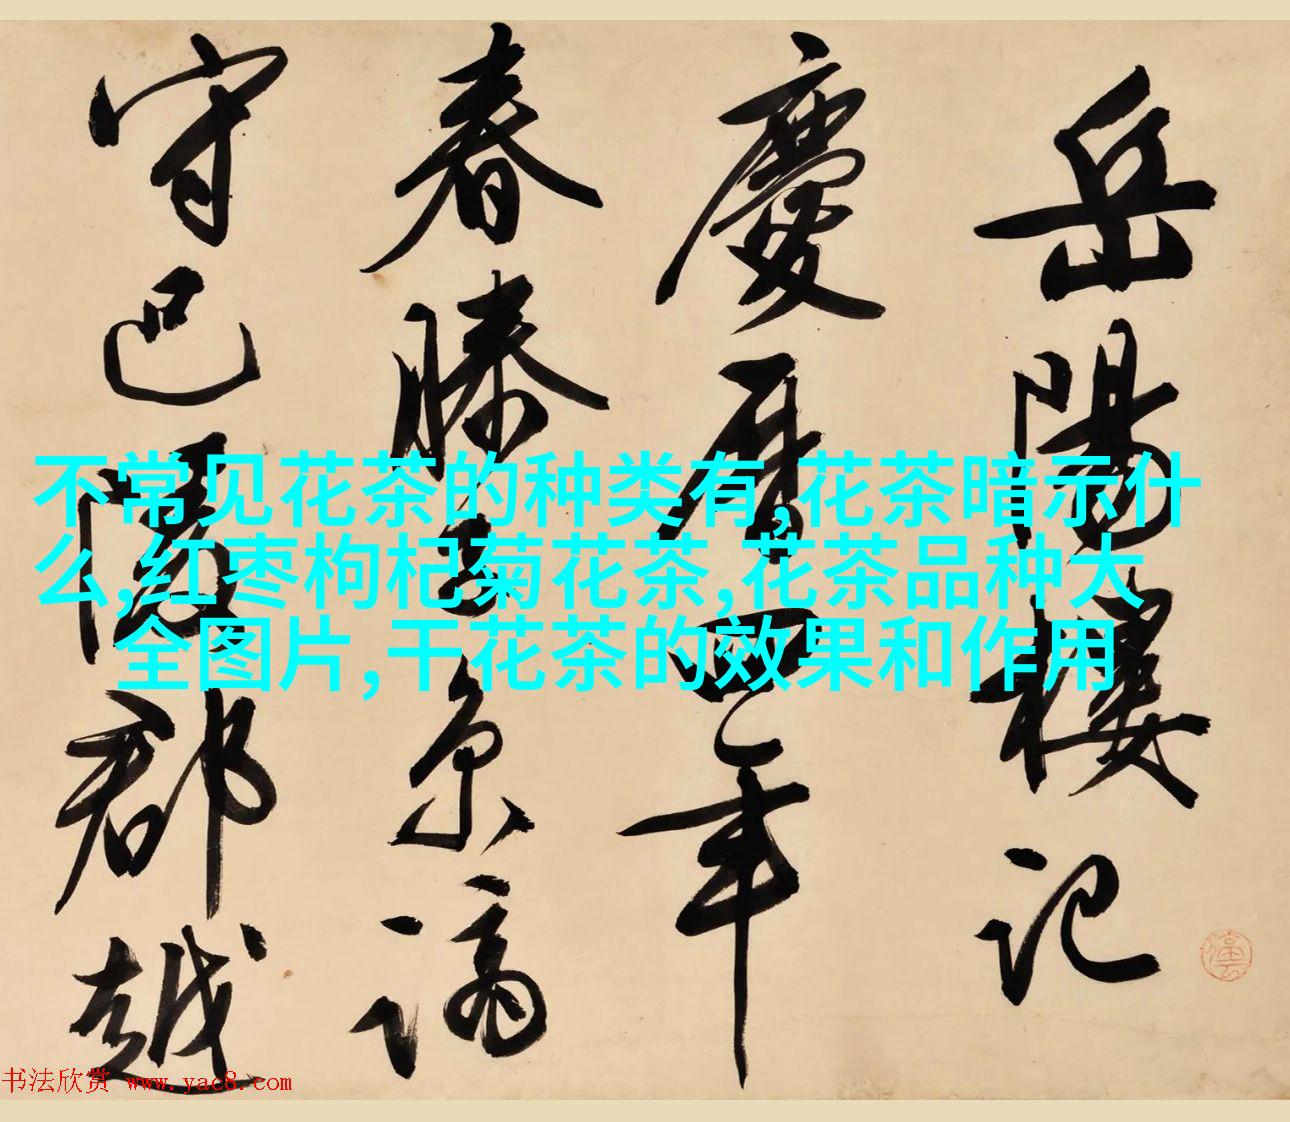 岳陽樓記
慶曆四年
春滕子京謫
守巴陵郡越
不常见花茶的种类有,花茶暗示什
么,红枣枸杞菊花茶,花茶品种大
全图片,干花茶的效果和作用
书法欣赏 www.yac8.com